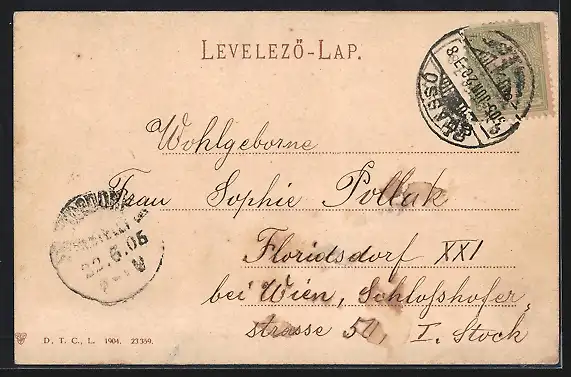 LEVELEZŐ-LAP.
BRASSÓ
Wohlgeborne
Frau Sophie Pollak
Floridsdorf XXI
bei Wien, Schloßhofer
strasse 54, I. Stock
22.6.05
D. T. C., L. 1904. 23359.